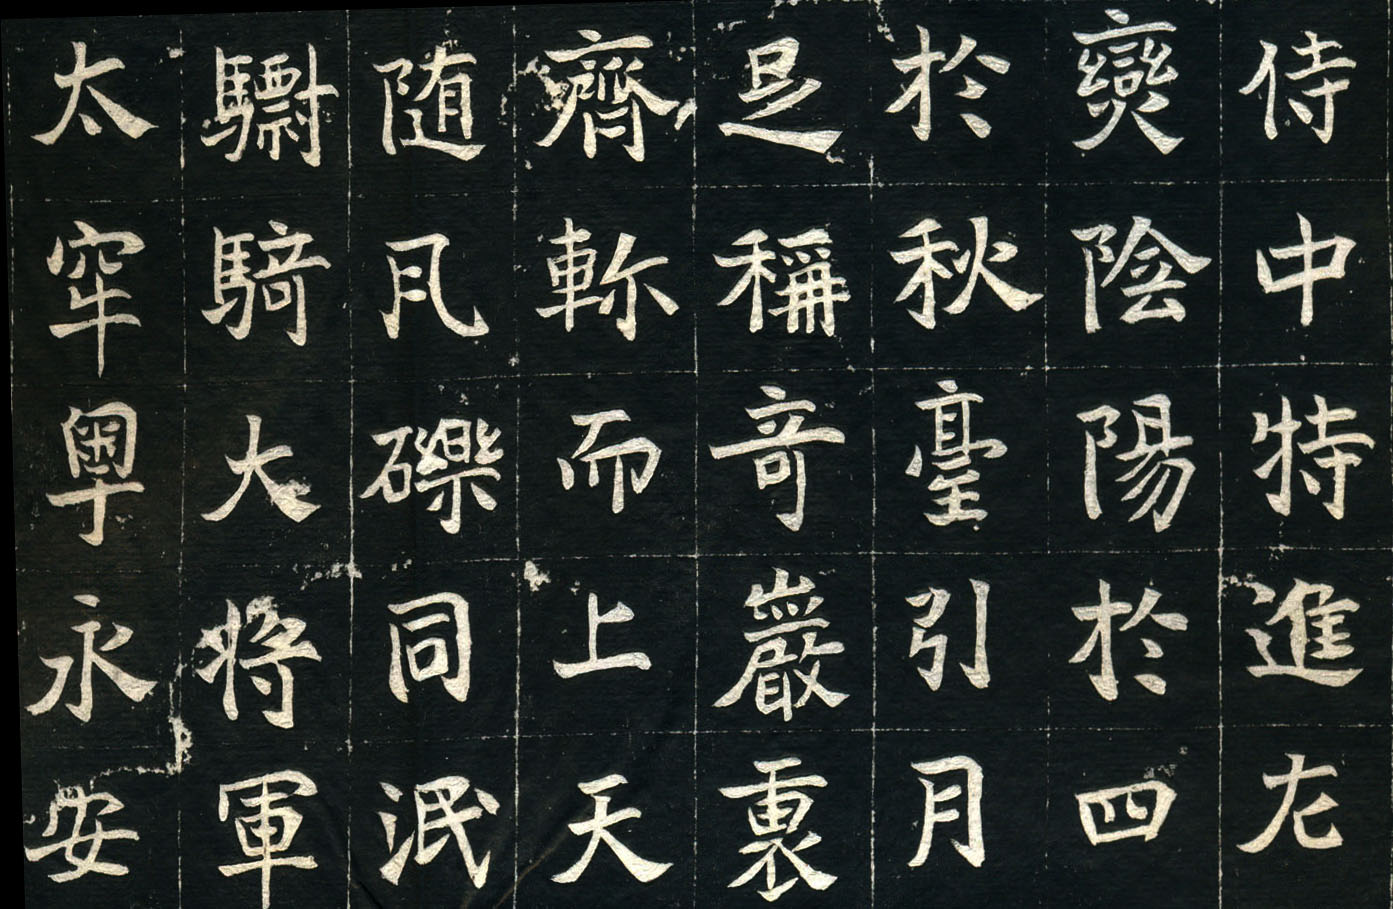 侍中特進左
燮陰陽於四
於秋臺引月
足稱奇巖裏
齊軫而上天
随凡礫同泯
驃騎大將軍
太宰粤永安